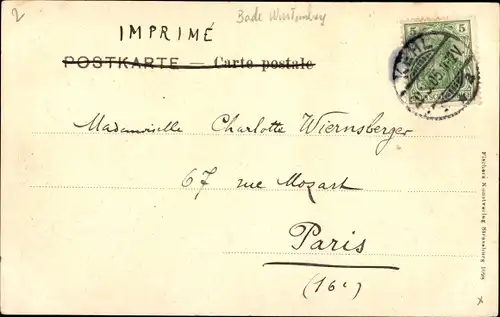 2
Bade Wurtemberg
IMPRIMÉ
POSTKARTE — Carte postale
5 5
KEHL
Mademoiselle Charlotte Wiernsberger
67 rue Mozart
Paris
(16e)
Fischers Kunstverlag Strassburg
x